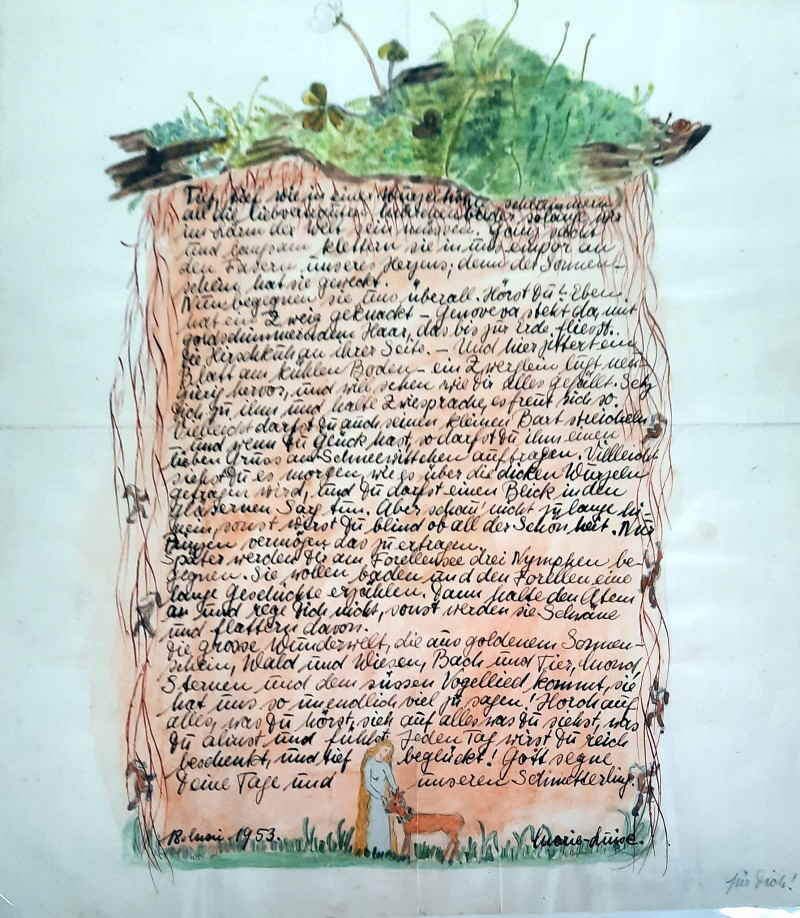 Tief, tief wie in einer Wurzelhöhle schlummern
all die liebvertrauten Märchenbilder solange wir
im Lärm der Welt sein müssen. Ganz sacht
und langsam klettern sie in uns empor an
den Fasern unseres Herzens, denn der Sonnen-
schein hat sie geweckt.
Nun begegnen sie uns überall. Hörst Du? Eben
hat ein Zweig geknackt – Genoveva steht da, mit
goldschimmerndem Haar, das bis zur Erde fliesst.
die Hirschkuh an ihrer Seite. – Und hier zittert ein
Blatt am kühlen Boden – ein Zwerglein lugt neu-
gierig hervor, und will sehen wie Dir alles gefällt. Setz
Dich zu ihm und halte Zwiesprache, es freut sich so.
Vielleicht darfst Du auch seinen kleinen Bart streicheln
– und wenn Du Glück hast, so darfst Du ihm einen
lieben Gruss an Schneewittchen auftragen. Villeicht
siehst Du es morgen, wie es über die dicken Wurzeln
getragen wird, und Du darfst einen Blick in den
gläsernen Sarg tun. Aber schau' nicht zu lange hi-
nein, sonst wirst Du blind ob all der Schönheit. Nur
vermögen das zu ertragen.
Später werden Dir am Forellensee drei Nymphen be-
gegnen. Sie wollen baden und den Forellen eine
lange Geschichte erzählen. Dann halte den Atem
an und rege Dich nicht, sonst werden sie Schwäne
und flattern davon.
Die grosse Wunderwelt, die aus goldenem Sonnen-
schein, Wald und Wiesen, Bach und Tier, Mond,
Sternen und dem süssen Vogellied kommt, sie
hat uns so unendlich viel zu sagen! Horch auf
alles, was Du hörst, sieh auf alles was Du siehst, was
Du ahnst und fühlst. Jeden Tag wirst Du reich
beschenkt, und tief beglückt! Gott segne
Deine Tage und unseren Schmetterling.
18. Juni 1953. Marie-Luise.
für Dich!